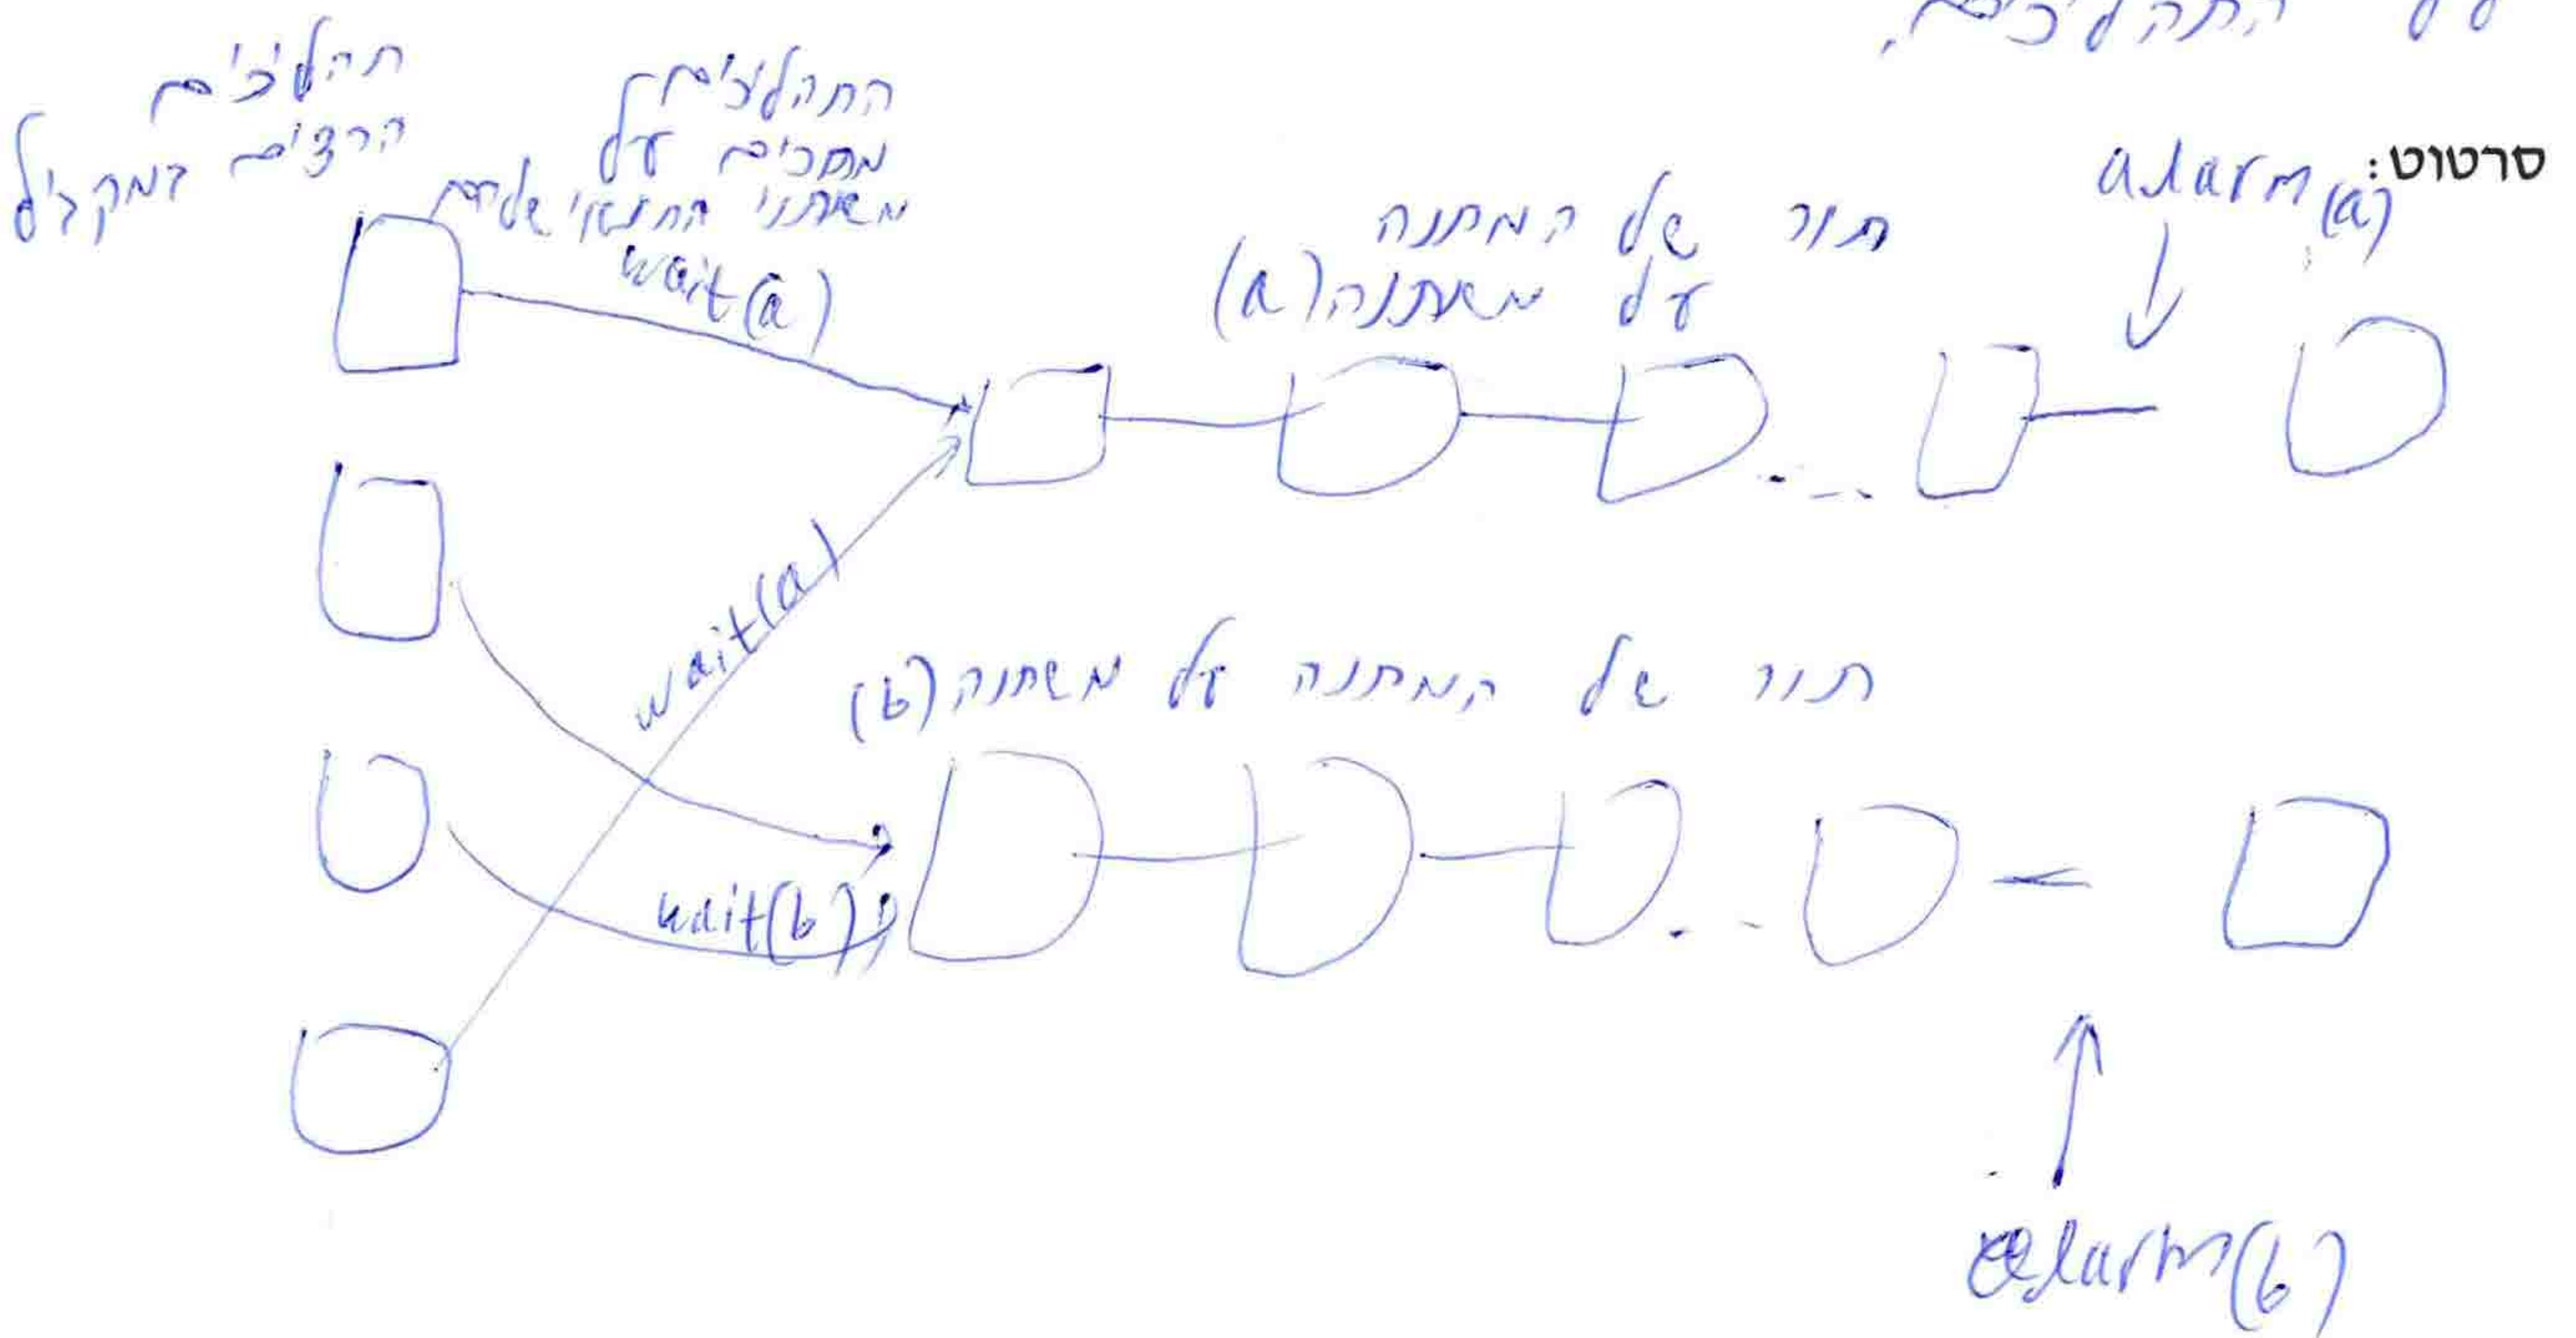 על התהליכים.
סרטוט:
alarm(a)
תהליכים
הרצים במקביל
התהליכים
מחכים על
משתני התנאי שלהם
wait(a)
תור של המתנה
על משתנה(a)
wait(a)
תור של המתנה על משתנה(b)
wait(b)
alarm(b)